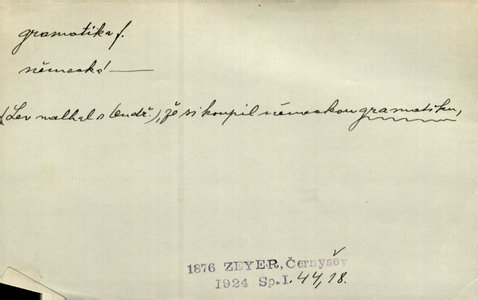 gramatika f.
německá —
že si koupil německou gramatiku,
1876 ZEYER, Černyšev
1924 Sp. I. 44, 18.